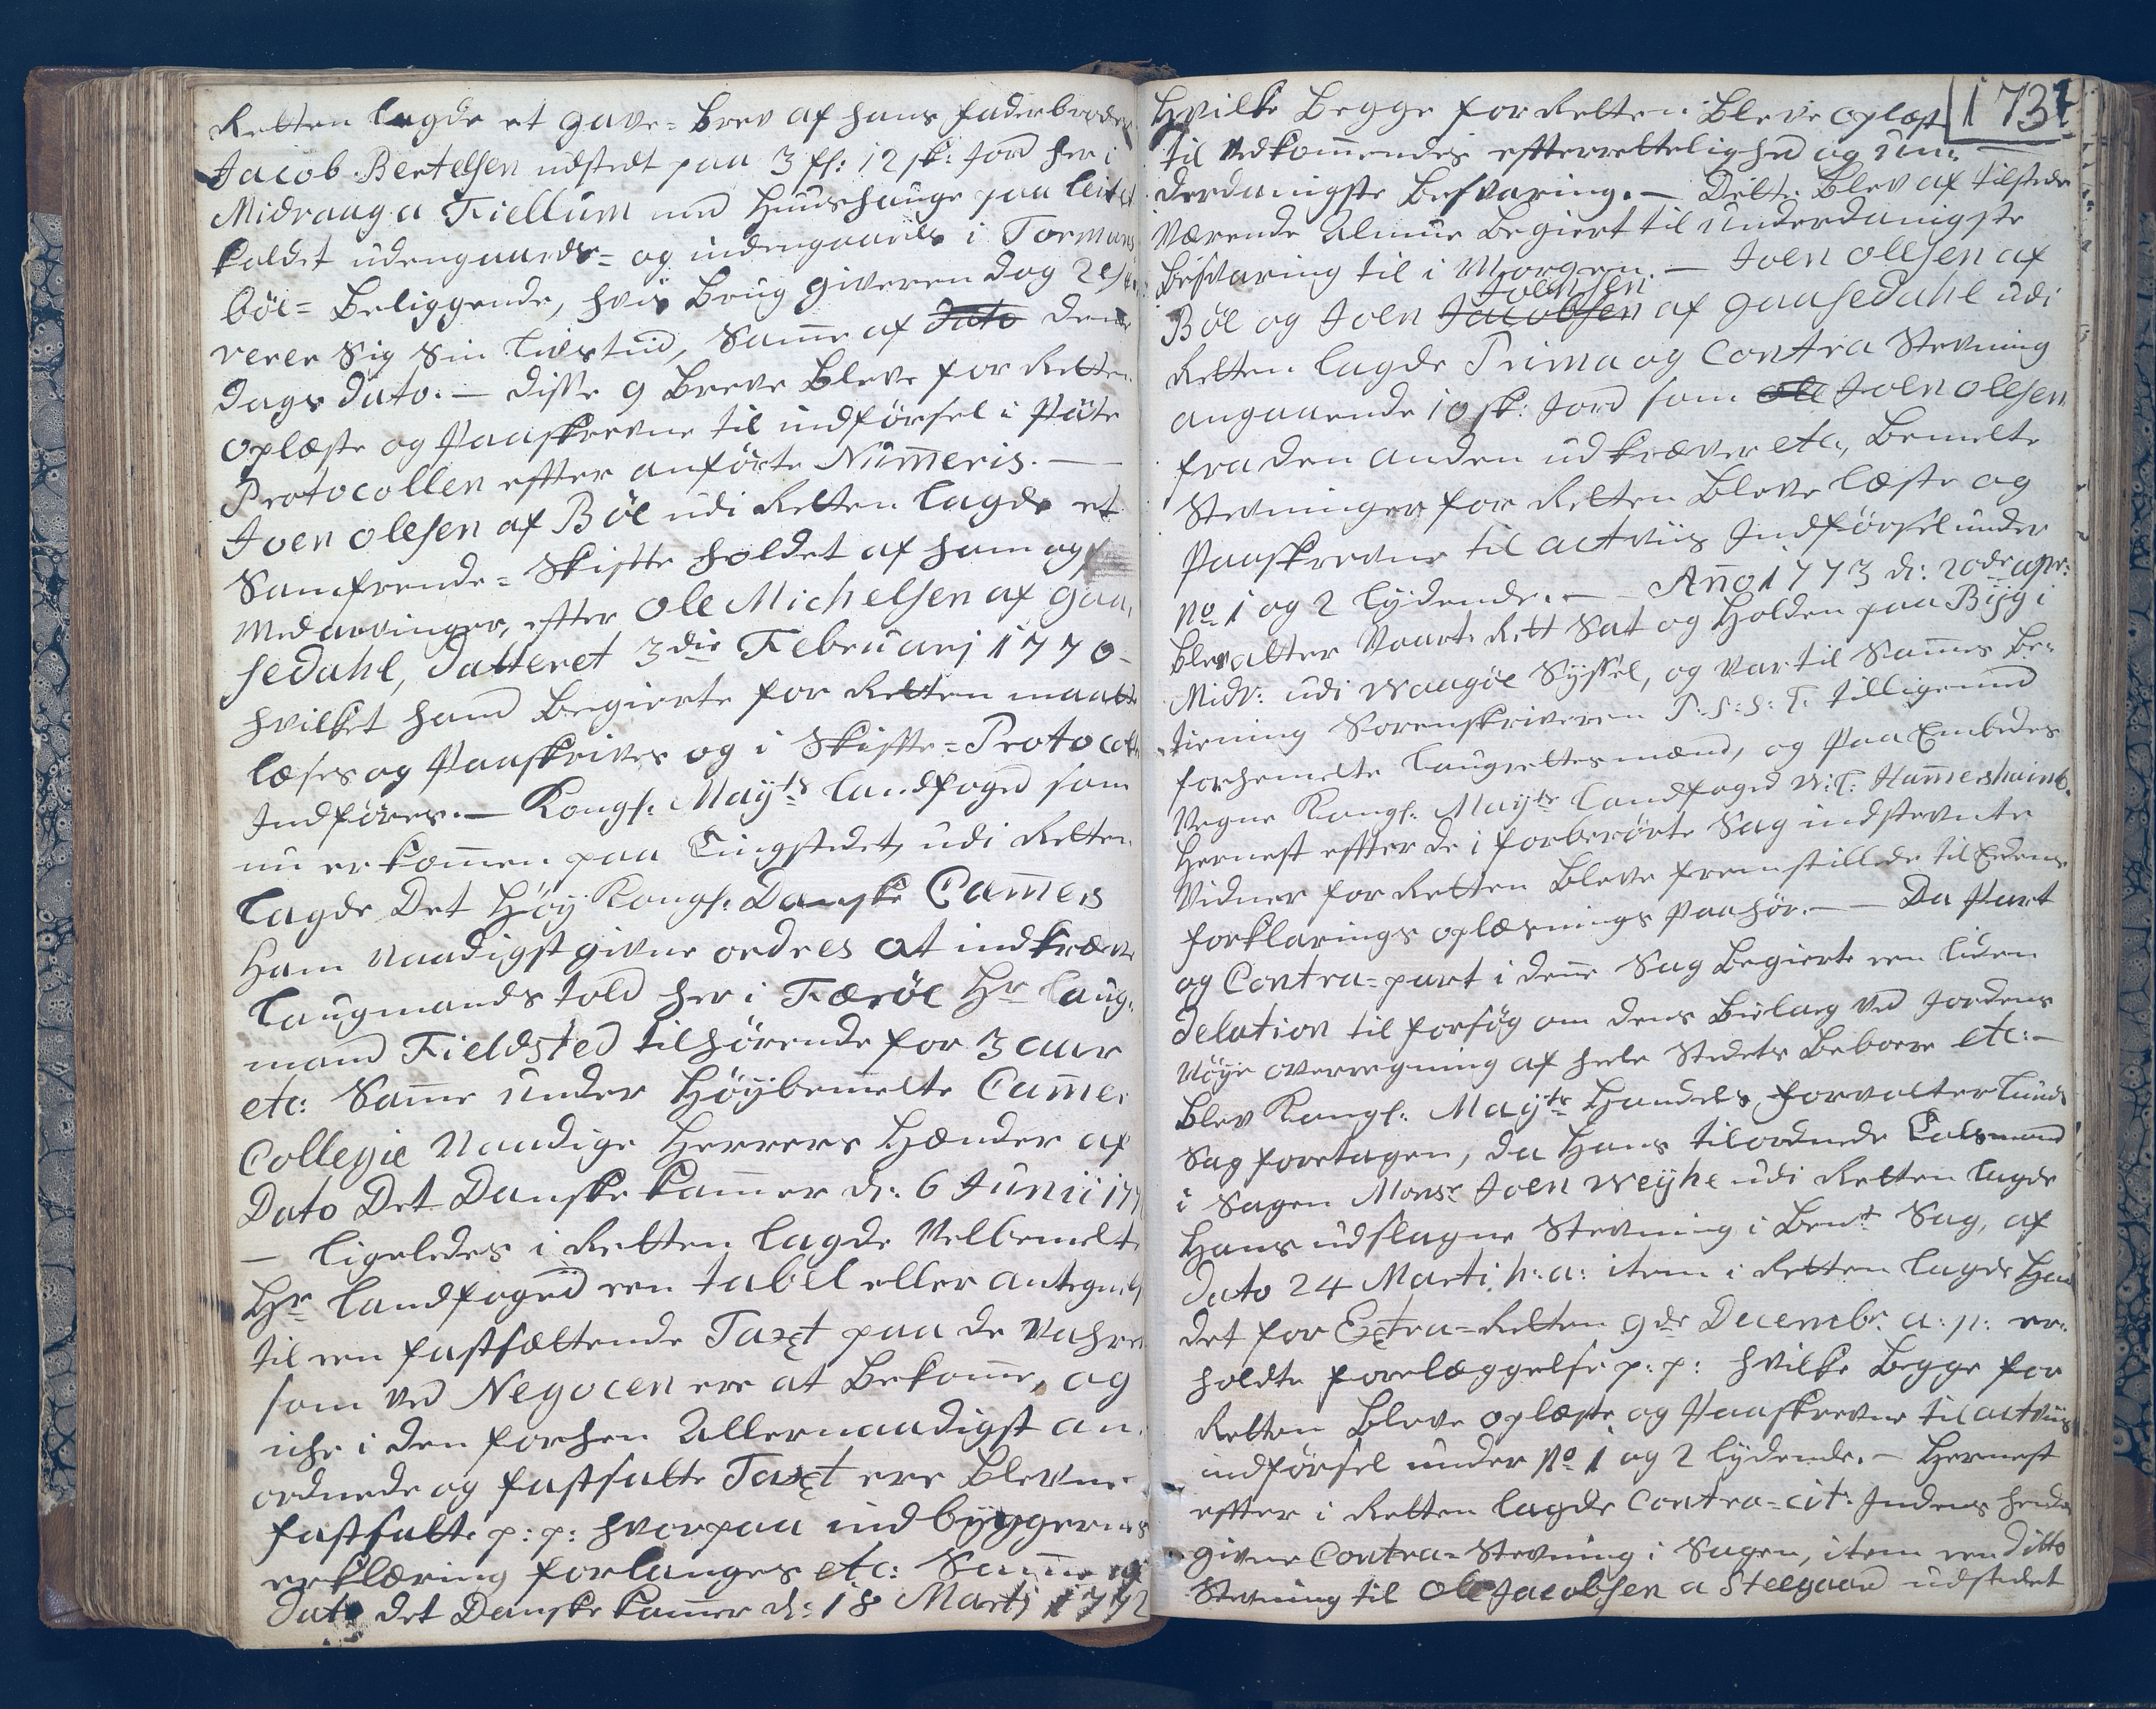 Retten lagde et gave=Brev af hans faderbroder
Jacob Bertelsen udstedt paa 3 fl: 12 sk: Jord her i
Midvaag a Fiellum med Huushauge paa Leitet
kaldet udengaards= og indengaards i Tormans
böe= Beliggende, hvis Brug giveren dog reser
verer Sig Sin Livs tiid, Samme af dato denne
dags dato. — disse 9 Breve Bleve for Retten
oplæste og Paaskrevne til indførsel i Pante
Protocollen efter anførte Numeris. —
Joen olesen af Böe udi Retten lagde et
Samfrende= Skifte holdet af ham og
Medarvinger, efter Ole Michelsen af gaa,
sedahl, datteret 3die Februarj 1770 -
hvilket hand Begierte for Retten maatte
læses og Paaskrives og i Skifte=Protocoll
Indføres. — Kongl: Mayts Landfoged som
nu er kommen paa Tingstedet, udi Retten
lagde Det Høy Kongl: Danske Camers
Ham Naadigst givne ordres at indkræve
Laugmands told her i Færöe Hr Laug,
mand Fieldsted tilhørende for 3 aar
etc: Samme under Høybemelte Camer
Collegie Naadige Herrers Hænder af
Dato Det Danske kammer d: 6 Junii 177
— ligeledes i Retten lagde Velbemelte
Hr Landfoged een tabel eller antegnels
til een fastsættende Taxt paa de Vahre
som ved Negocen ere at Bekomme, og
iche i den forhen Allernaadigst an,
ordnede og fastsatte Taxt ere Blevne
fastsatte p: p: hvorpaa indbyggernes
erklæring forlanges etc: Samme af
Dato det Danske kammer d: 18 Martj 1772
173
Hvilke Begge for Retten Bleve oplæst
til Vedkommendes efterrettelighed og un,
derdanigste Besvaring. — Dette Blev af tilstede
Værende Almue Begiert til underdanigste
Besvaring til i Morgen. — Joen olesen af
Joensen
Böe og Joen Jacobsen af gaasedahl udi
Retten lagde Prima og Contra Stevning
angaaende 10 sk: Jord som Ole Joen olesen
fra den anden udkræver etc, Bemelte
Stevninger for Retten Bleve læste og
Paaskrevne til actviis Indførsel under
No 1 og 2 lydende. — Anno 1773 d: 20de apr:
Blev atter Vaarte Rett Sat og Holden paa Byg i
Midv: udi Waagöe Syssel, og Var til Sammes Be,
tiening Sorenskriveren P: S: H: T: tilligemed
forhemelte Laugrettesmænd, og Paa Embedes
Vegne Kongl: Mayts Landfoged W: T: Hammershaimb.
Hernest efter de i forberørte Sag indstevnte
Vidner for Retten Bleve fremstillede til Edens
forklarings oplæsnings Paahör. — Da Part
og Contra=part i denne Sag Begierte een liden
delation til forsøg om dens Bielag ved Jordens
Nöye overregning af hele Stedets Beboere etc: —
Blev Kongl: Mayts Handels forvalter Lunds
Sag foretagen, da Hans tilordnede Talsmand
i Sagen Monsr Joen Weyhe udi Retten lagde
Hans udslagne Stevning i Bente Sag, af
Dato 24 Marti. h: a: item i Retten lagde Han
det for Extra=Retten 9de Decembr: a: p: er,
holdte forelæggelse p: p: hvilke Begge for
Retten Bleve oplæste og Paaskrevne til actviis
indførsel under No 1 og 2 lydende. — Hernest
efter i Retten lagde Contra=cit: Indens hende
givne Contra=Stevning i Sagen, item een ditto
Stevning til Ole Jacobsen a Steegaard udstedet